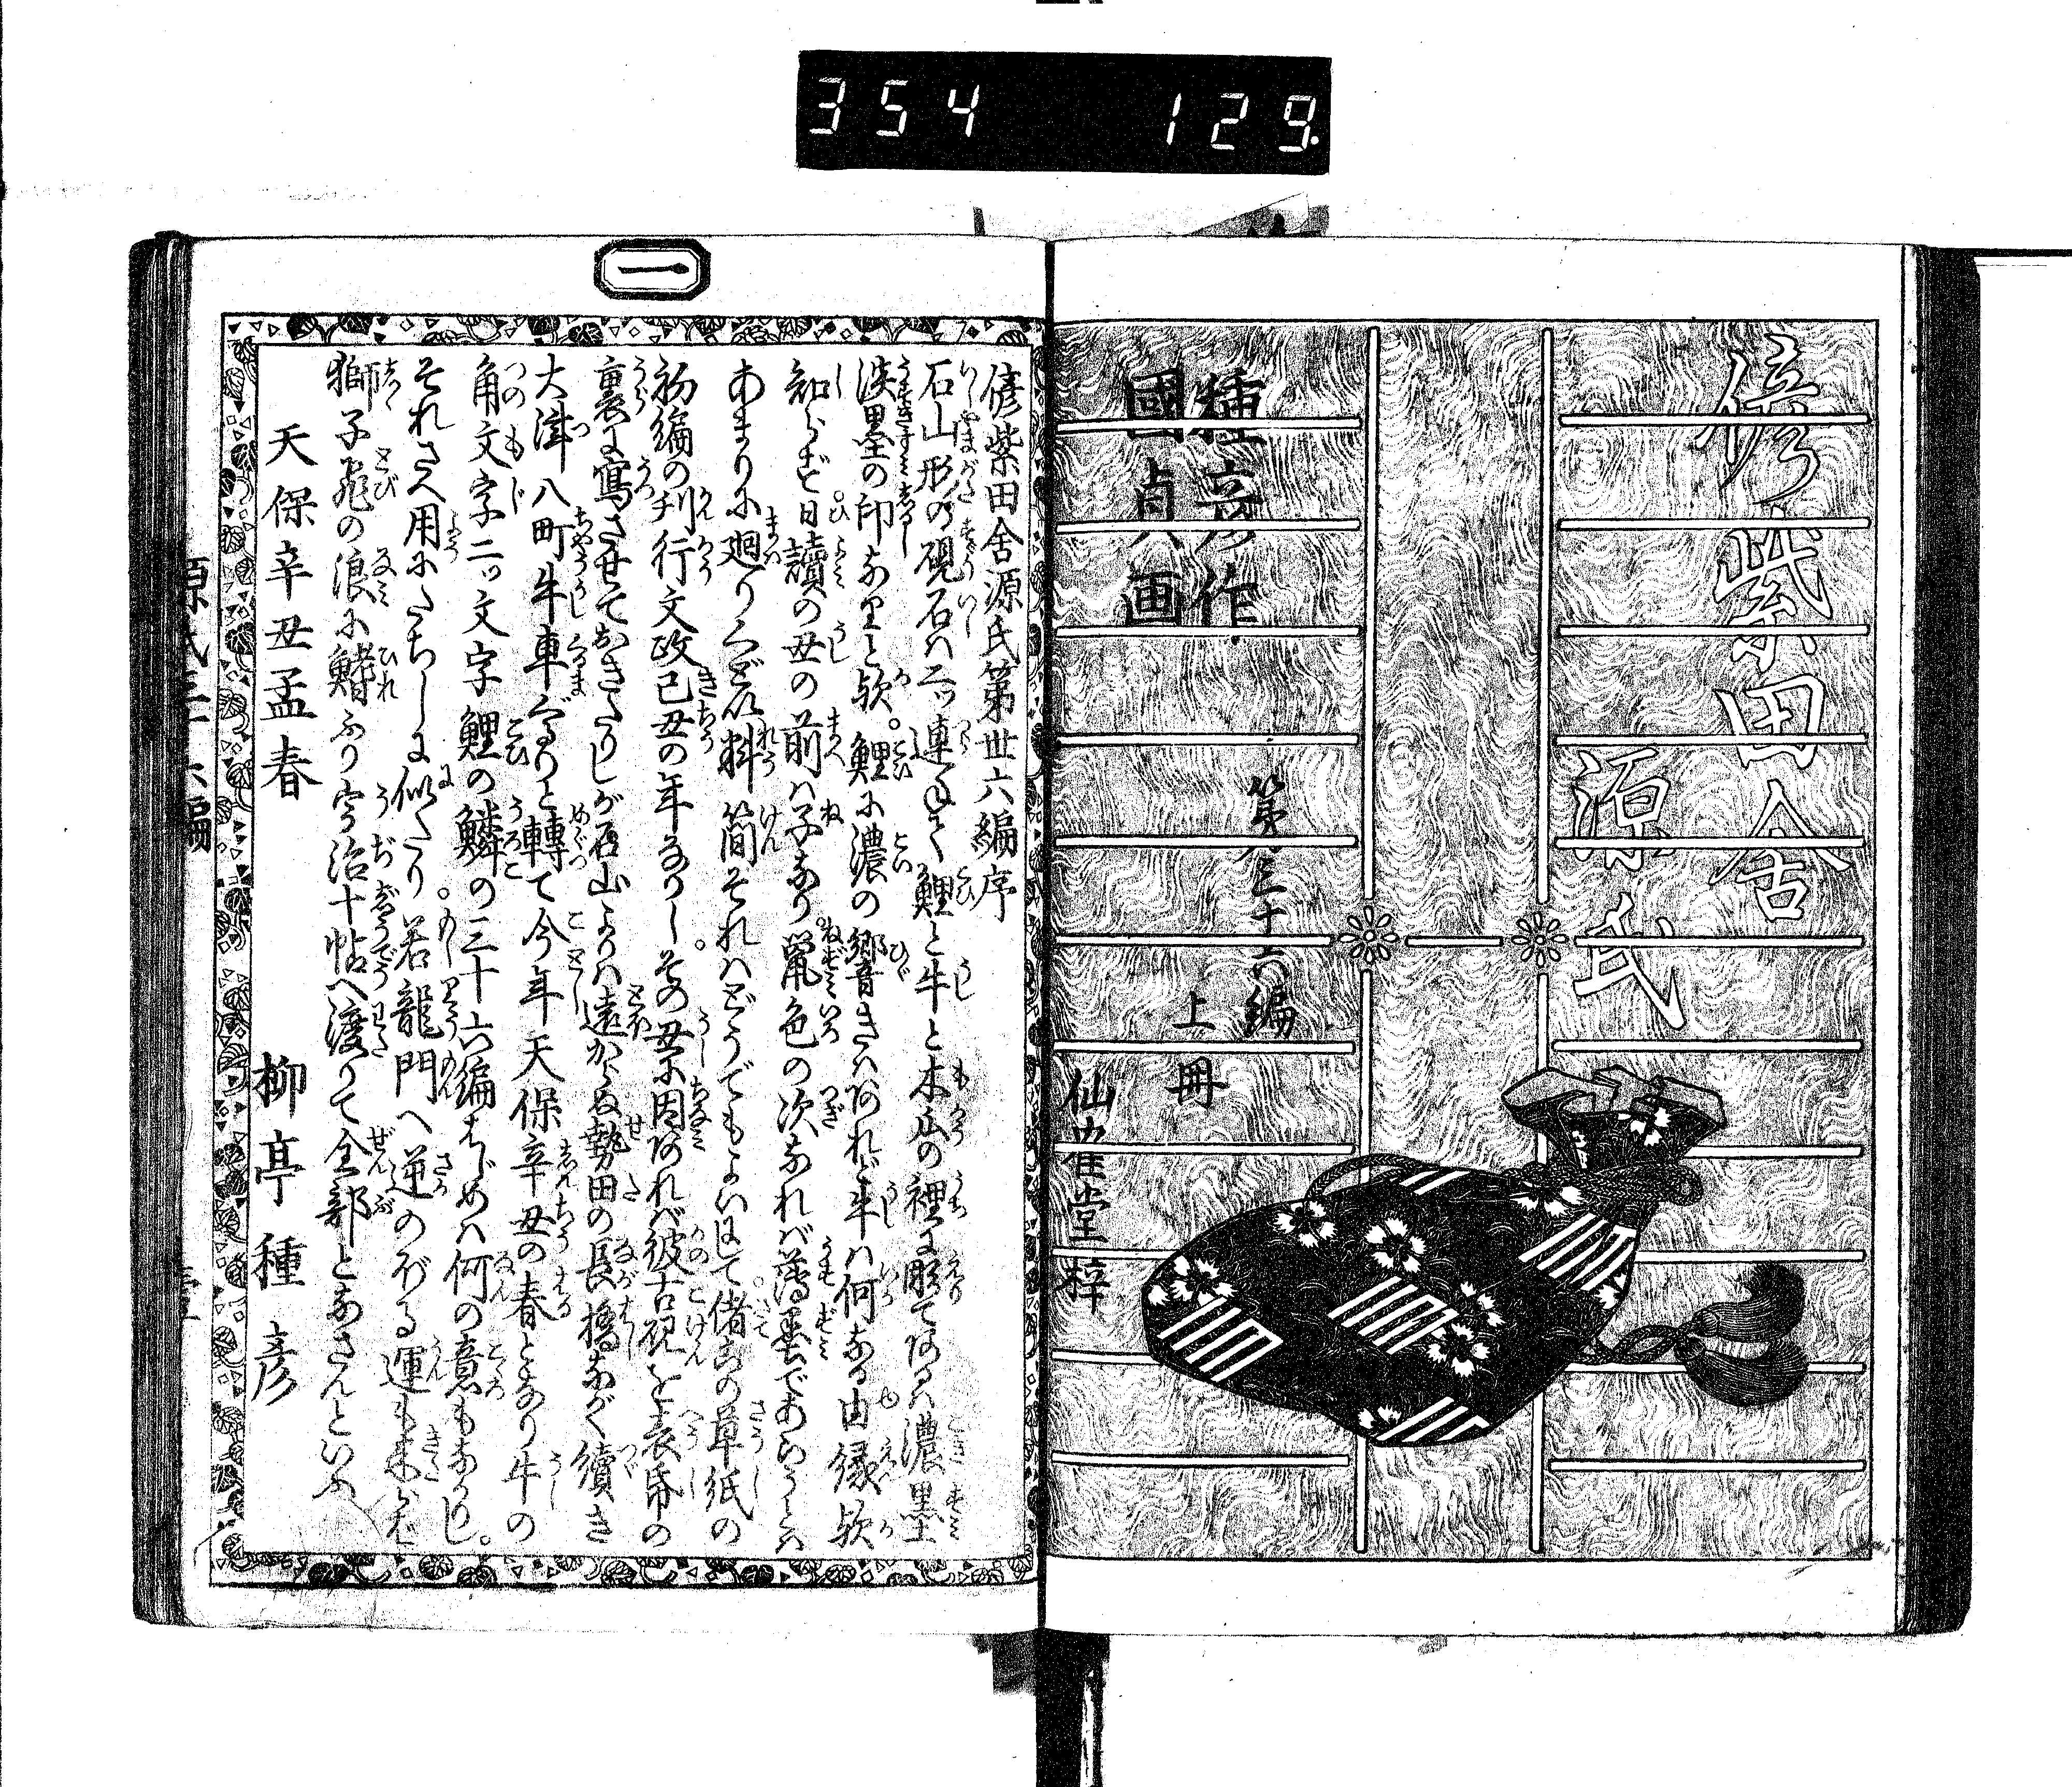 354 129
偐紫田舎
源氏
種彦作
國貞画
第三十六編
上冊
仙鶴堂梓
一
偐紫田舎源氏第丗六編序
石山形の硯石ハ二ッ連ねて鯉と牛と木瓜の裡に彫てあるハ濃墨
淡墨の印なりと歟。鯉に濃の響きハあれど牛ハ何なる由縁歟
知らず。日讀の丑の前ハ子なり。鼠色の次なれば薄墨であらうとハ
あまりに廻りくどい料簡それハどうでもよいにして。偖この草紙の
初編の刊行文政己丑の年なりし。その丑に因あれば彼古硯を表帋の
裏に寫させておきたりしが石山よりハ遠からぬ勢田の長橋ながく續き
大津八町牛車ぐるりと轉て今年天保辛丑の春となり牛の
角文字二ッ文字鯉の鱗の三十六編はじめハ何の意もなかりし。
それさへ用にたちしに似たり。若龍門へ逆のぼる運も来らば
獅子飛の浪に鰭ふり宇治十帖へ渡りて全部となさんといふ
天保辛丑孟春
柳亭種彦
源氏三十六編